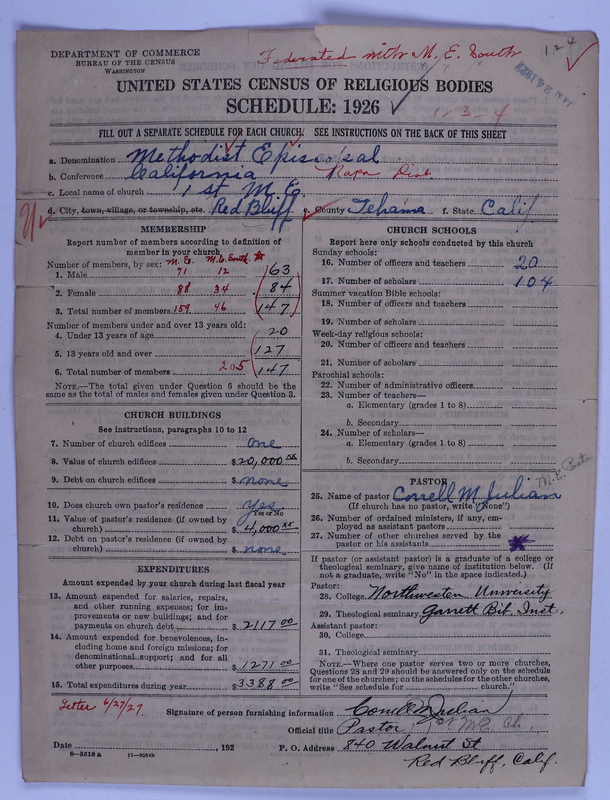 DEPARTMENT OF COMMERCE
BUREAU OF THE CENSUS
WASHINGTON
Federated with M. E. South
1 2 4
JAN 24 1927
UNITED STATES CENSUS OF RELIGIOUS BODIES
SCHEDULE: 1926
1-3-4
FILL OUT A SEPARATE SCHEDULE FOR EACH CHURCH. SEE INSTRUCTIONS ON THE BACK OF THIS SHEET
a. Denomination Methodist Episcopal
b. Conference California Napa Dist
c. Local name of church 1st M. E.
d. City, town, village, or township, etc. Red Bluff e. County Tehama f. State Calif
MEMBERSHIP
Report number of members according to definition of member in your church
Number of members, by sex: M. E. M. E. South
1. Male 71 12 63
2. Female 88 34 84
3. Total number of members 159 46 147
Number of members under and over 13 years old:
4. Under 13 years of age 20
5. 13 years old and over 127
6. Total number of members 205 147
NOTE.—The total given under Question 6 should be the
same as the total of males and females given under Question 3.
CHURCH BUILDINGS
See instructions, paragraphs 10 to 12
7. Number of church edifices one
8. Value of church edifices $20,000 xx
9. Debt on church edifices $ none
10. Does church own pastor's residence yes
Yes or No
11. Value of pastor's residence (if owned by
church) $ 4,000 xx
12. Debt on pastor's residence (if owned by
church) $ none
EXPENDITURES
Amount expended by your church during last fiscal year
13. Amount expended for salaries, repairs,
and other running expenses; for im-
provements or new buildings; and for
payments on church debt $ 2117 00
14. Amount expended for benevolences, in-
cluding home and foreign missions; for
denominational support; and for all
other purposes $ 1271 00
15. Total expenditures during year $ 3388 00
CHURCH SCHOOLS
Report here only schools conducted by this church
Sunday schools:
16. Number of officers and teachers 20
17. Number of scholars 104
Summer vacation Bible schools:
18. Number of officers and teachers
19. Number of scholars
Week-day religious schools:
20. Number of officers and teachers
21. Number of scholars
Parochial schools:
22. Number of administrative officers
23. Number of teachers—
a. Elementary (grades 1 to 8)
b. Secondary
24. Number of scholars—
a. Elementary (grades 1 to 8)
b. Secondary
PASTOR
25. Name of pastor Correll M Julian M. E. Pastor
(If church has no pastor, write "None")
26. Number of ordained ministers, if any, em-
ployed as assistant pastors
27. Number of other churches served by the
pastor or his assistants
If pastor (or assistant pastor) is a graduate of a college or
theological seminary, give name of institution below. (If
not a graduate, write "No" in the space indicated.)
Pastor:
28. College Northwestern University
29. Theological seminary Garrett Bib. Inst.
Assistant pastor:
30. College
31. Theological seminary
NOTE.—Where one pastor serves two or more churches,
Questions 28 and 29 should be answered only on the schedule
for one of the churches; on the schedules for the other churches,
write "See schedule for church."
Letter 6/27/27
Signature of person furnishing information Correll M Julian
Official title Pastor 1st M E Ch.
Date , 192 P. O. Address 840 Walnut St
8-5518a
Red Bluff, Calif.